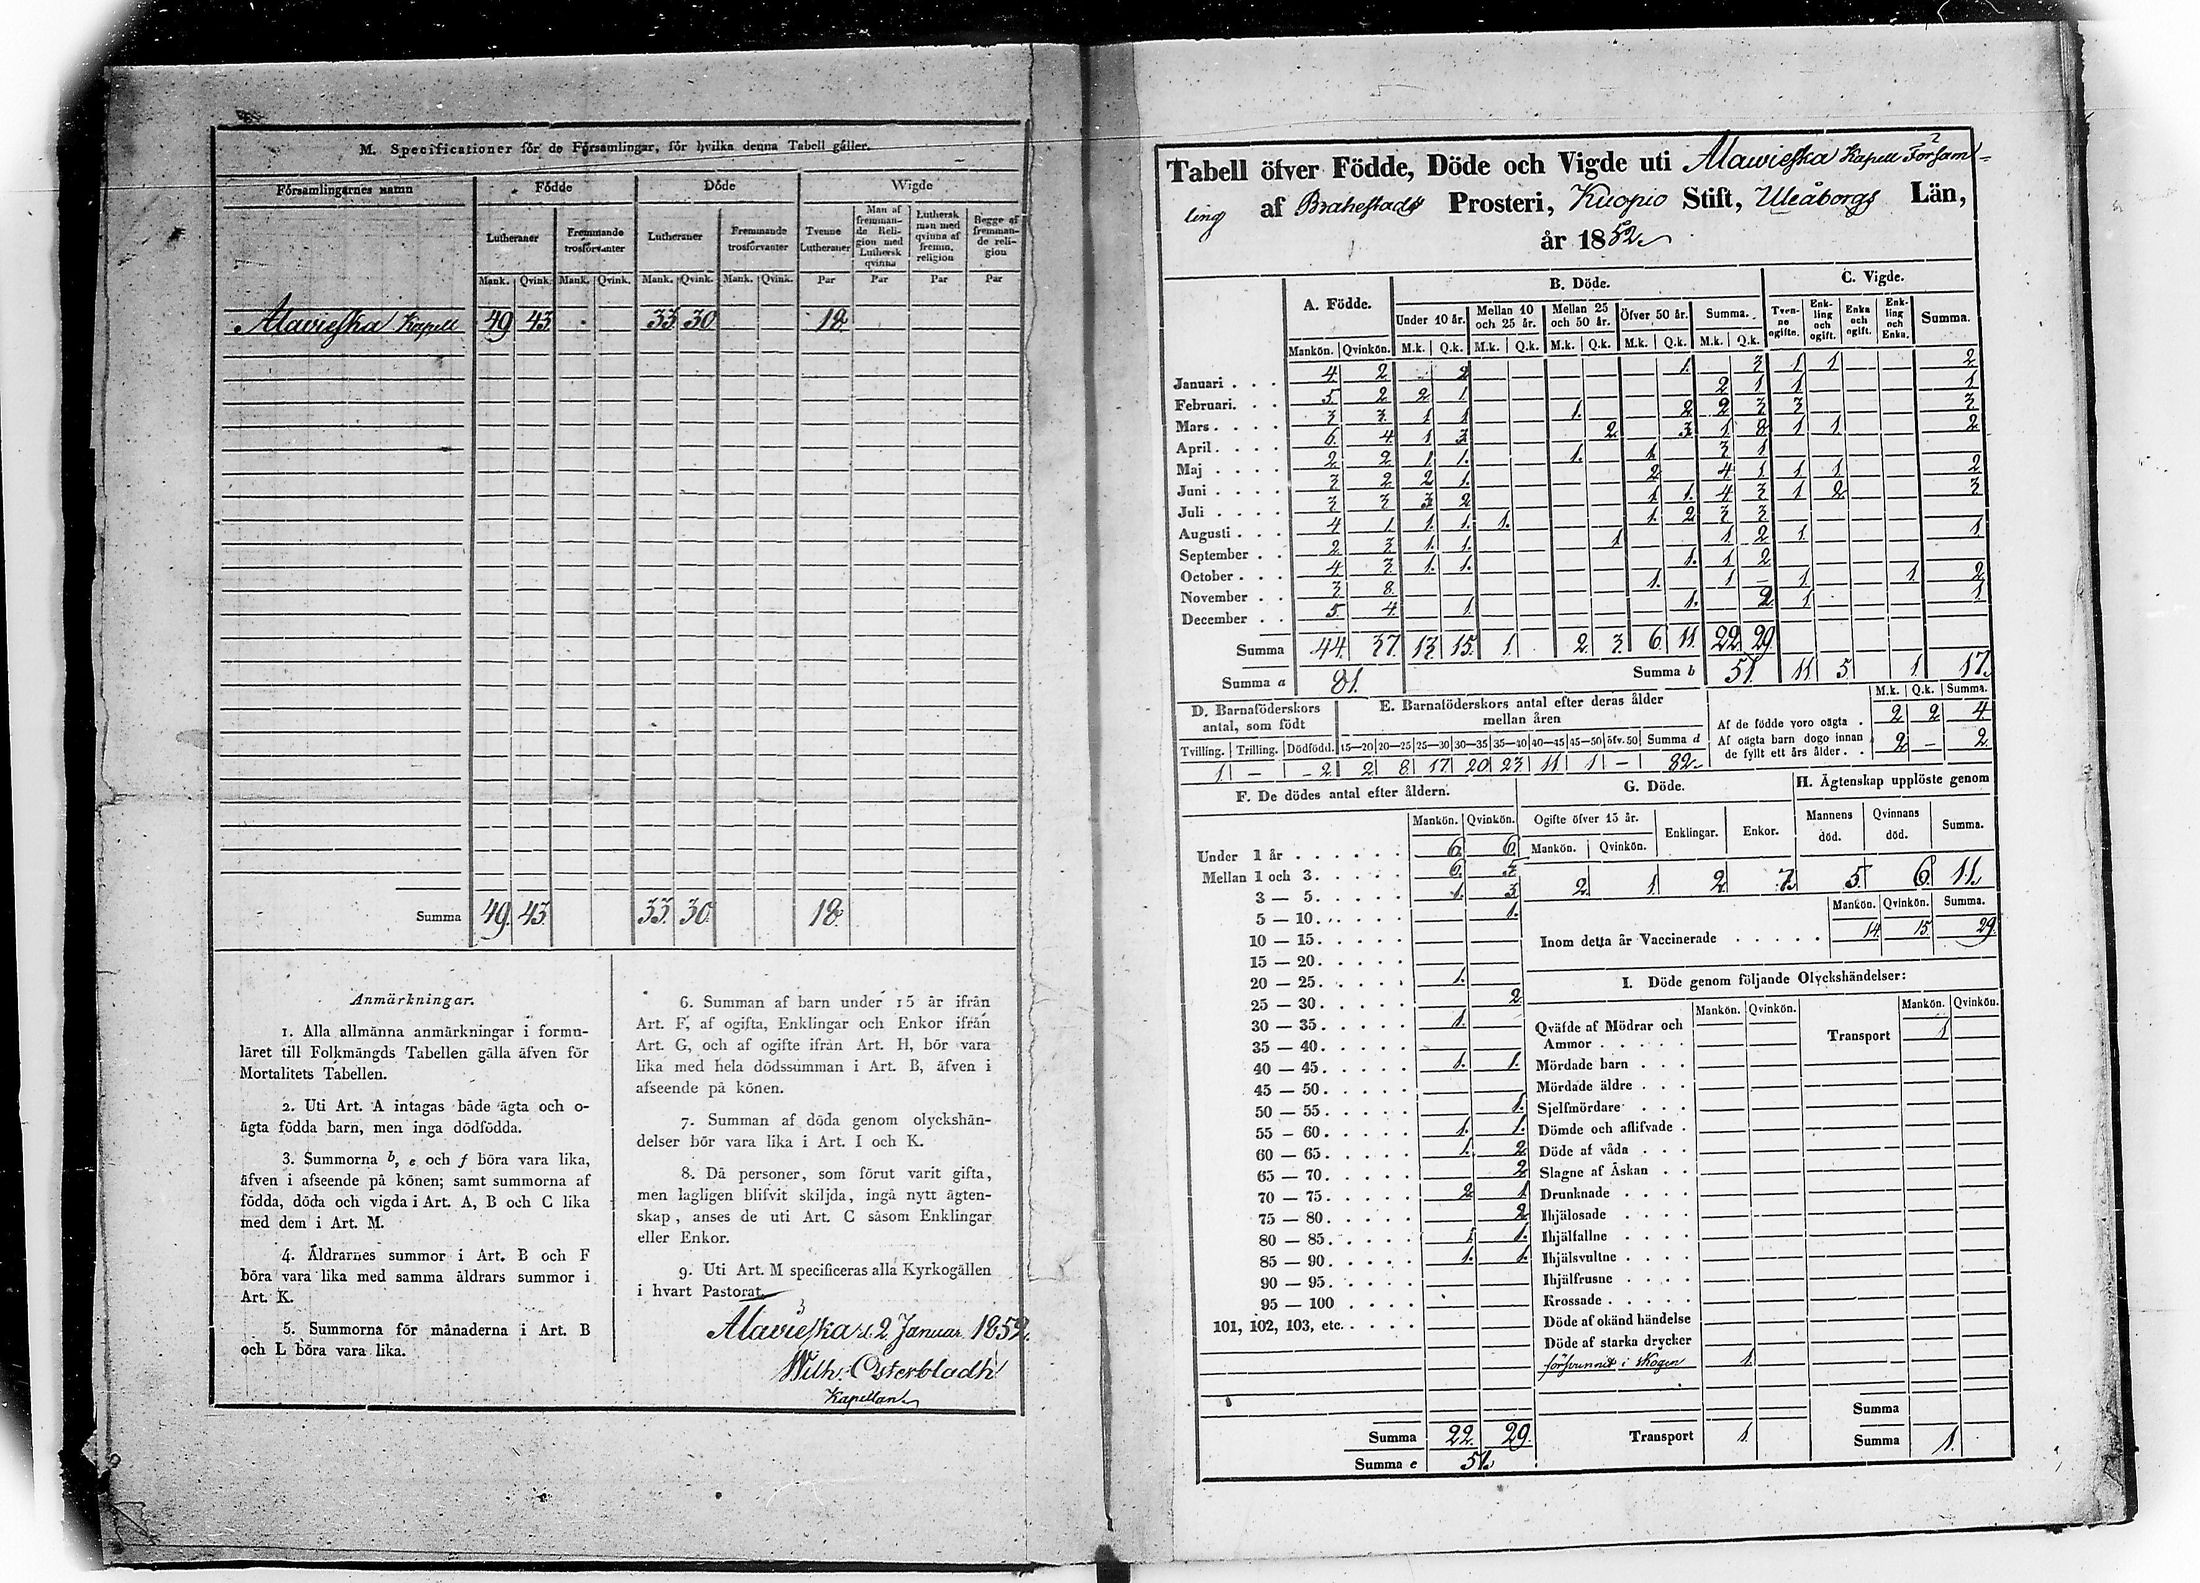 M. Specificationer för de Församlingar, för hvilka denna Tabell gäller.
Församlingarnes namn | Födde | Döde | Wigde
Lutheraner | Fremmande trosförvanter | Lutheraner | Fremmande trosförvanter | Tvenne Lutheraner | Man af fremmande Religion med Luthersk qvinna | Luthersk man med qvinna af fremm. religion | Begge af fremmande religion
Mank. | Qvink. | Mank. | Qvink. | Mank. | Qvink. | Mank. | Qvink. | Par | Par | Par | Par
Alavieska Kapell 49 43 33 30 18
Summa 49. 43. 33. 30. 18.
Anmärkningar.
1. Alla allmänna anmärkningar i formu-
läret till Folkmängds Tabellen gälla äfven för
Mortalitets Tabellen.
2. Uti Art. A intagas både ägta och o-
ägta födda barn, men inga dödfödda.
3. Summorna b, e och f böra vara lika,
äfven i afseende på könen; samt summorna af
födda, döda och vigda i Art. A, B och C lika
med dem i Art. M.
4. Åldrarnes summor i Art. B och F
böra vara lika med samma åldrars summor i
Art. K.
5. Summorna för månaderna i Art. B
och L böra vara lika.
6. Summan af barn under 15 år ifrån
Art. F, af ogifta, Enklingar och Enkor ifrån
Art. G, och af ogifte ifrån Art. H, bör vara
lika med hela dödssumman i Art. B, äfven i
afseende på könen.
7. Summan af döda genom olyckshän-
delser bör vara lika i Art. I och K.
8. Då personer, som förut varit gifta,
men lagligen blifvit skiljda, ingå nytt ägten-
skap, anses de uti Art. C såsom Enklingar
eller Enkor.
9. Uti Art. M specificeras alla Kyrkogällen
i hvart Pastorat.
Alavieska d. 2 Januar. 1852.
Wilh. Österbladh
Kapellan
Tabell öfver Födde, Döde och Vigde uti Alawieska Kapell Församl-
ling af Brahestads Prosteri, Kuopio Stift, Uleåborgs Län,
år 1852.
A. Födde. | B. Döde. | C. Vigde.
Under 10 år. | Mellan 10 och 25 år. | Mellan 25 och 50 år. | Öfver 50 år. | Summa. | Tvenne ogifte. | Enkling och ogift. | Enka och ogift. | Enkling och Enka. | Summa.
Mankön. | Qvinkön. | M.k. | Q.k. | M.k. | Q.k. | M.k. | Q.k. | M.k. | Q.k. | M.k. | Q.k.
Januari 4 2 2 1. 3 1 1 2
Februari. 5 2 2 1 2 1 1 1
Mars 3 3. 1 1 1. 2 2 3 3 3
April 6 4 1 3 2 3 1 8 1 1 2
Maj 2 2 1 1. 1. 1. 3 1
Juni 3 2 2 1. 2 4 1 1 1 2
Juli 3 3 3 2 1 1. 4 3 1 2 3
Augusti 4 1. 1. 1. 1. 1. 2 3 3
September 2 3 1. 1. 1 1 2 1 1
October 4 3 1. 1. 1. 1 2
November 3 8. 1. 1 – 1. 1. 2
December 5. 4. 1. 1. 2 1. 1.
Summa 44. 37. 13 15. 1. 2 3. 6 11. 22 29.
Summa a 81. Summa b 51. 11 5. 1. 17.
D. Barnaföderskors antal, som födt | E. Barnaföderskors antal efter deras ålder mellan åren | M.k. | Q.k. | Summa.
Af de födde voro oägta . 2 2 4
Tvilling. | Trilling. | Dödfödd. | 15—20 | 20—25 | 25—30 | 30—35 | 35—40 | 40—45 | 45—50 | öfv. 50 | Summa d
Af oägta barn dogo innan de fyllt ett års ålder . . 2 – 2.
1. – 2 2 8 17 20 23 11 1 – 82.
F. De dödes antal efter åldern. | G. Döde. | H. Ägtenskap upplöste genom
Mankön. | Qvinkön. | Ogifte öfver 15 år. | Enklingar. | Enkor. | Mannens död. | Qvinnans död. | Summa.
Mankön. | Qvinkön.
2 1 2 7. 5 6 11.
Mankön. | Qvinkön. | Summa.
Inom detta år Vaccinerade 14. 15. 29.
Under 1 år 6 6
Mellan 1 och 3.
3 — 5. 1. 3
5 — 10. 1.
10 — 15.
15 — 20.
20 — 25. 1.
25 — 30. 2
30 — 35. 1.
35 — 40.
40 — 45. 1. 1.
45 — 50.
50 — 55. 1.
55 — 60. 1. 1.
60 — 65. 1. 2
65 — 70. 2
70 — 75. 2 1
75 — 80. 2
80 — 85. 1 1.
85 — 90. 1. 1.
90 — 95.
95 — 100
101, 102, 103, etc.
Summa 22. 29.
Summa e 51.
I. Döde genom följande Olyckshändelser:
Mankön. | Qvinkön. | Mankön. | Qvinkön.
Qväfde af Mödrar och Ammor
Transport 1
Mördade barn
Mördade äldre
Sjelfmördare
Dömde och aflifvade
Döde af våda
Slagne af Åskan
Drunknade
Ihjälosade
Ihjälfallne
Ihjälsvultne
Ihjälfrusne
Krossade
Döde af okänd händelse
Döde af starka drycker
försvunnit i skogen 1.
Summa
Transport 1.
Summa 1.